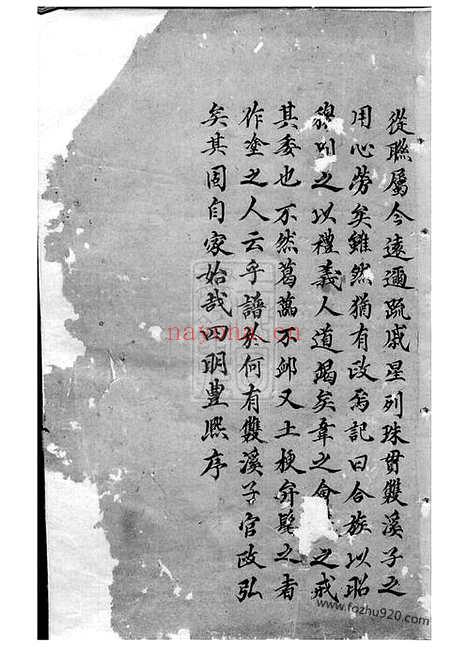 從聯屬今遠邇疏戚星列珠貫雙溪子之
用心勞矣雖然猶有政焉記曰合族以昭
穆別之以禮義人道竭矣韋之會之戒
其委也不然葛藟不卹又土梗弁髦之者
作塗之人云乎譜於何有雙溪子官政弘
矣其固自家始哉四明豊熙序
nayona.cn
www.fozhu920.com